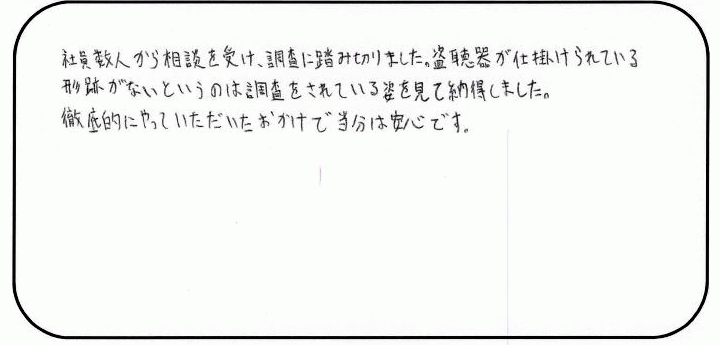 社員数人から相談を受け、調査に踏み切りました。盗聴器が仕掛けられている
形跡がないというのは調査をされている姿を見て納得しました。
徹底的にやっていただいたおかげで当分は安心です。